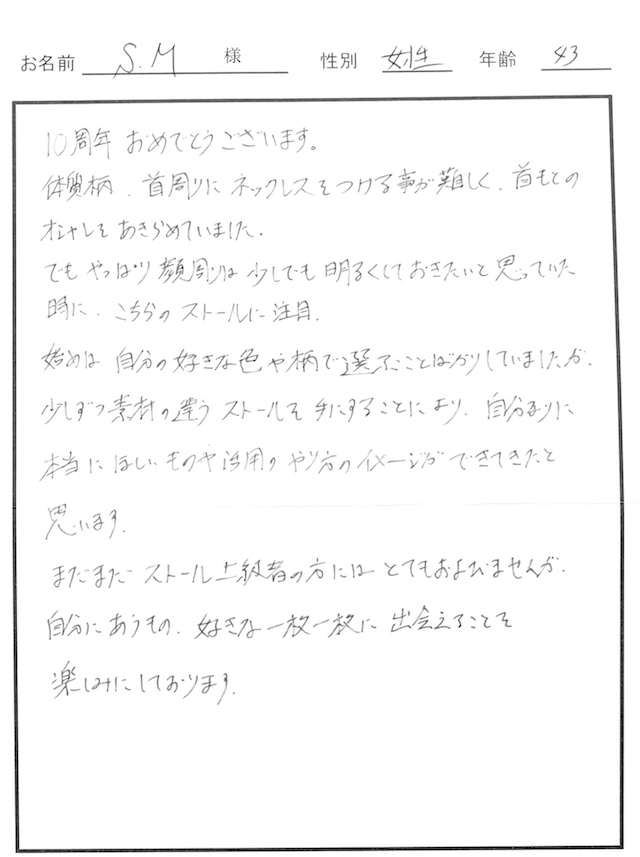 お名前 S.M 様 性別 女性 年齢 43
10周年 おめでとうございます。
体質柄、首周りに ネックレスをつける事が難しく、首もとの
オシャレを あきらめていました。
でも やっぱり 顔周りは 少しでも 明るくしておきたいと 思っていた
時に、こちらの ストールに 注目。
始めは 自分の好きな色や柄で 選ぶことばかりしていましたが、
少しずつ 素材の違う ストールを 手にすることにより、自分なりに
本当に ほしいものや 活用の やり方のイメージが できてきたと
思います。
まだまだ ストール上級者の方には とてもおよびませんが、
自分にあうもの、好きな一枚一枚に 出会えることを
楽しみにしております。